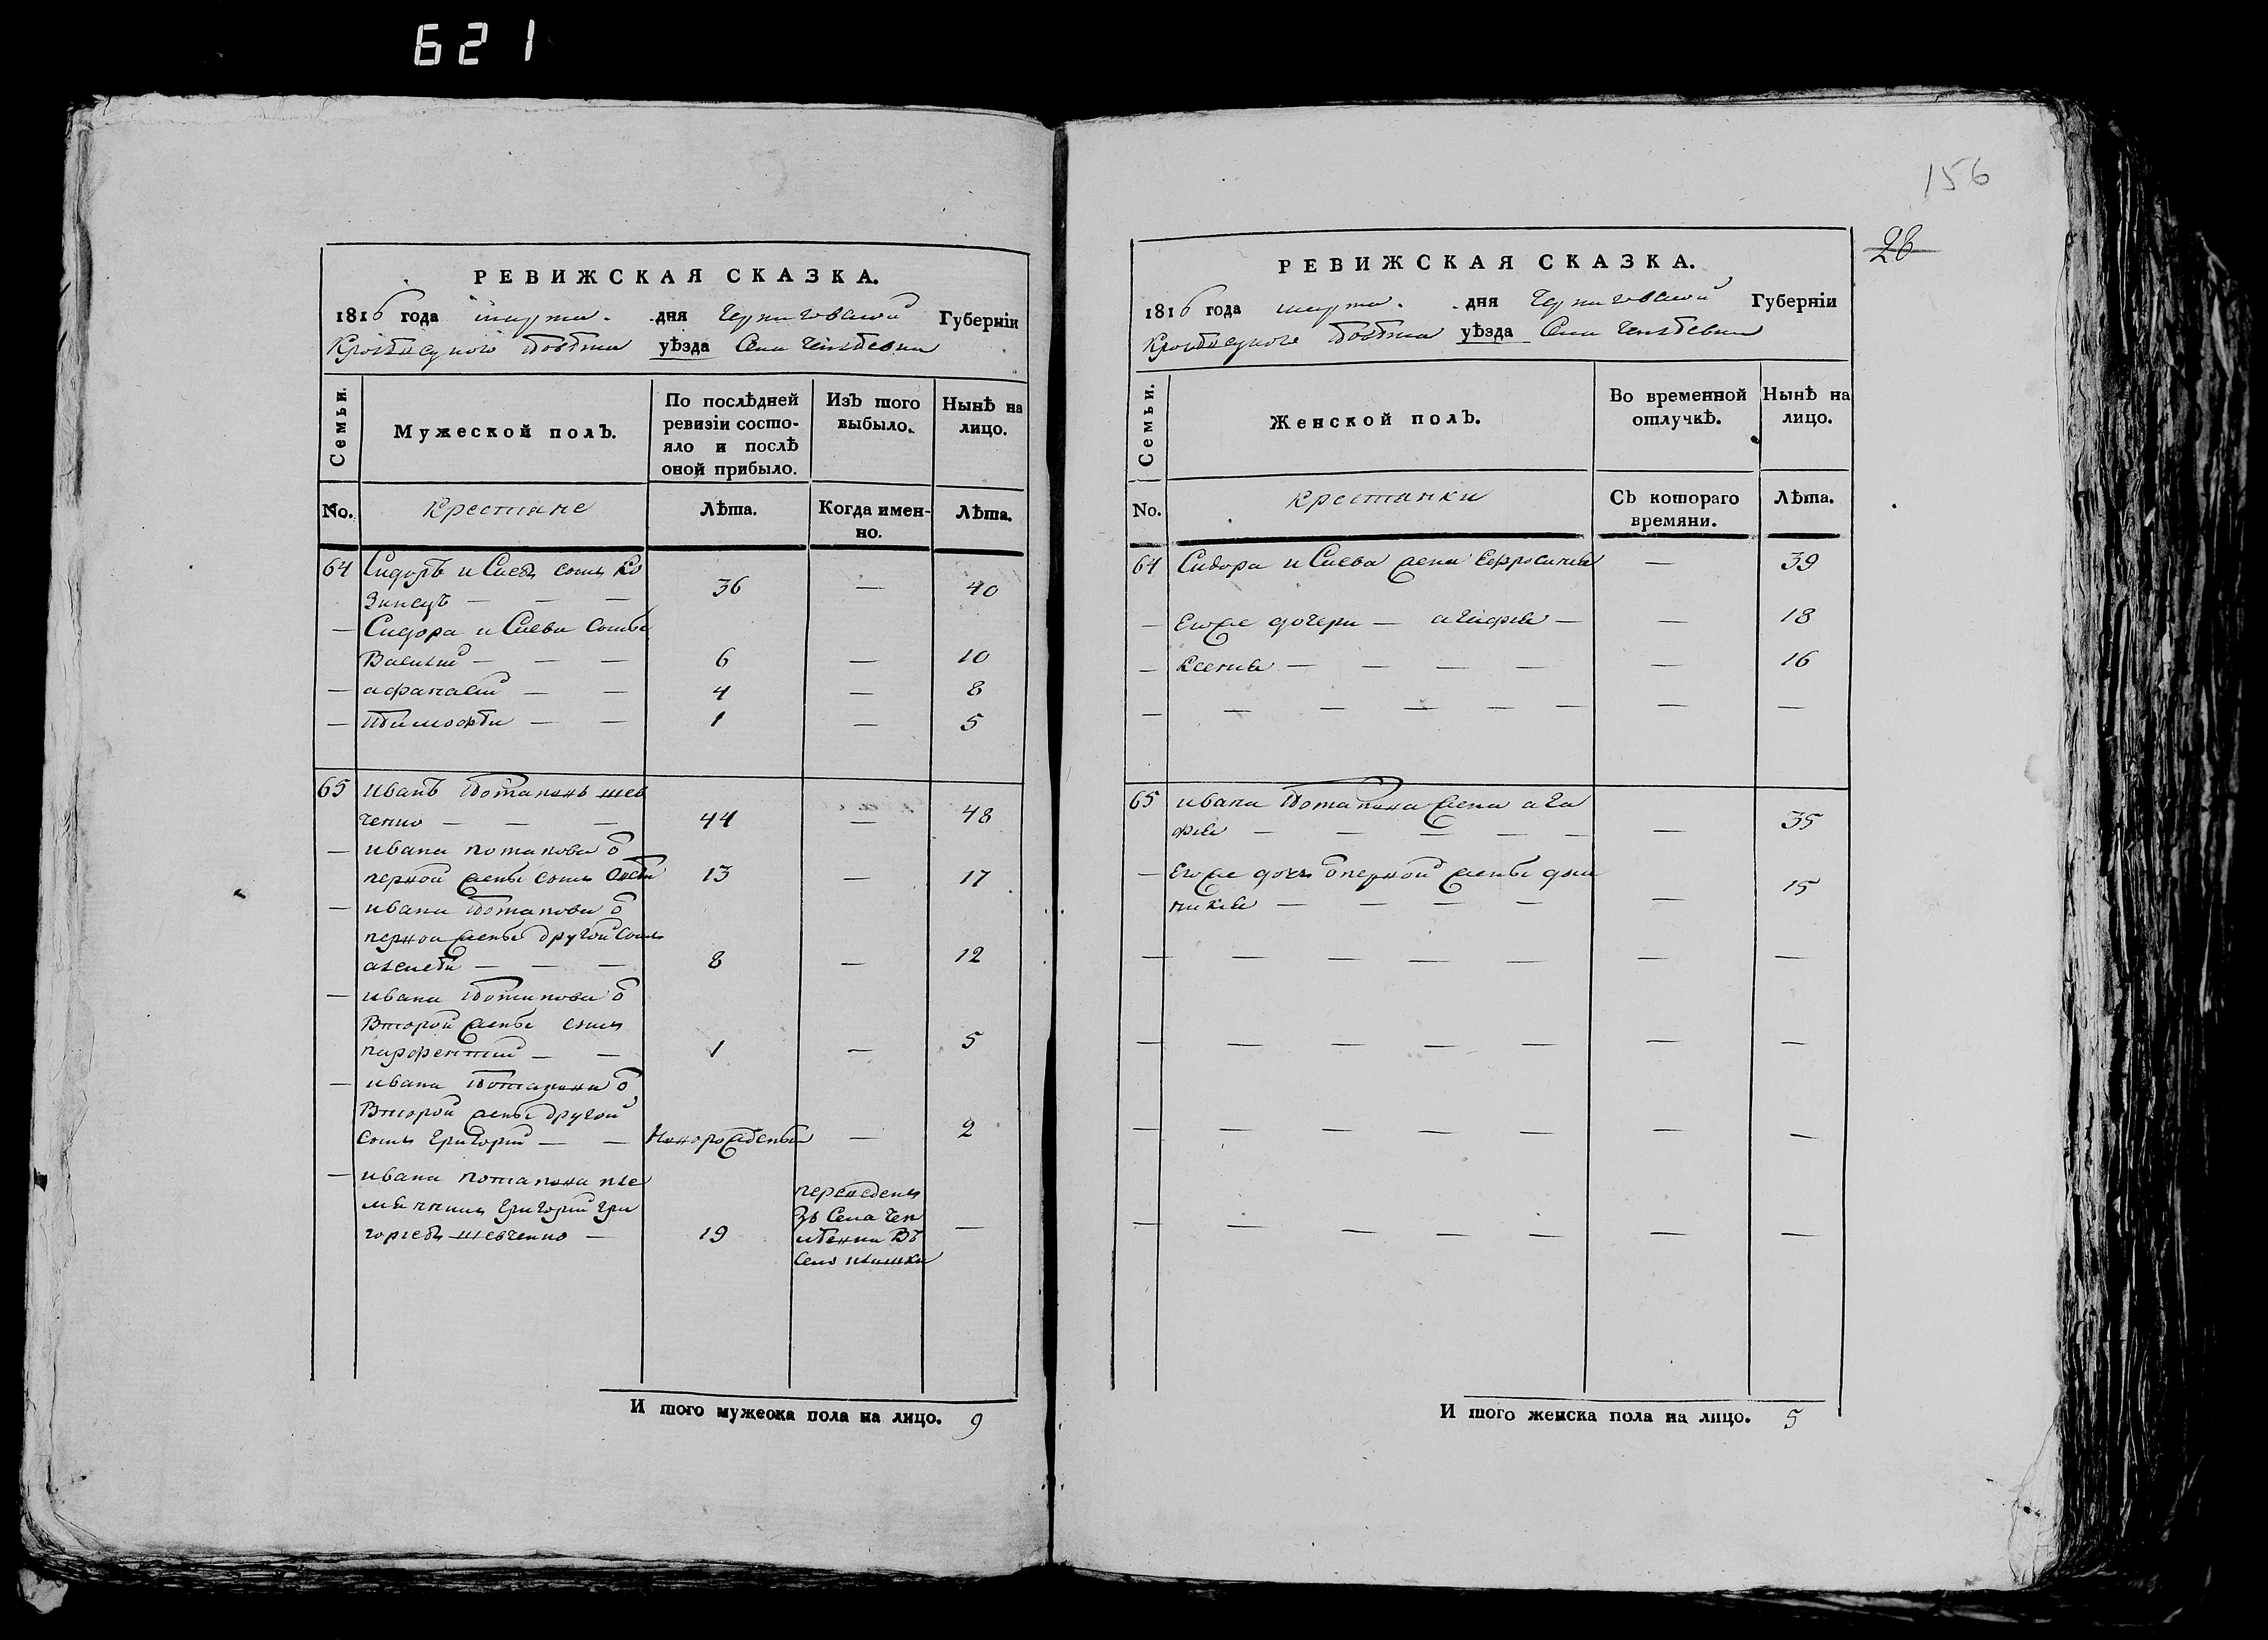 621
156
РЕВИЖСКАЯ СКАЗКА.
1816 года марта . дня Черниговской Губерніи
повѣта уѣзда Села
Семьи.
Мужеской полъ.
По послѣдней
ревизіи состо-
яло и послѣ
оной прибыло.
Изъ того
выбыло.
Нынѣ на
лицо.
No.
Крестіане
Лѣта.
Когда имен-
но.
Лѣта.
64 Сидоръ сынъ Ко
36 — 40
— Сидора
Василій — — — 6 — 10
— афанасий — — 4 — 8
— тимофѣй — — 1 — 5
65 иванъ Потаповъ шев
ченко — — — 44 — 48
— ивана потапова о
первой жены сынъ 13 — 17
— ивана Потапова о
первой жены другой сынъ
алексѣй — — — 8 — 12
— ивана Потапова о
Второй жены сынъ
парфентий — — 1 — 5
— ивана Потапова о
Второй жены другой
сынъ григорий — — Новорожденый — 2
— ивана потапова пле
мянникъ григорий гри
горьевъ шевченко — 19 —
переведенъ
Зъ Села
Въ
Село
И того мужеска пола на лицо. 9
РЕВИЖСКАЯ СКАЗКА.
28
1816 года марта . . дня Черниговской Губерніи
повѣта уѣзда Села
Семьи.
Женской полъ.
Во временной
отлучкѣ.
Нынѣ на
лицо.
No.
Крестянки
Съ котораго
времяни.
Лѣта.
64 Сидора жена Ефросинія — 39
— Егоже дочери — агафія — — 18
— Ксенія — — — — — 16
— — — — — — — —
65 ивана Потапова жена ага
фія — — — — — — 35
— Егоже дочь о первой жены дом
никія — — — — — 15
— — — — — — —
— — — — — — —
— — — — — — —
— — — — — — —
И того женска пола на лицо. 5